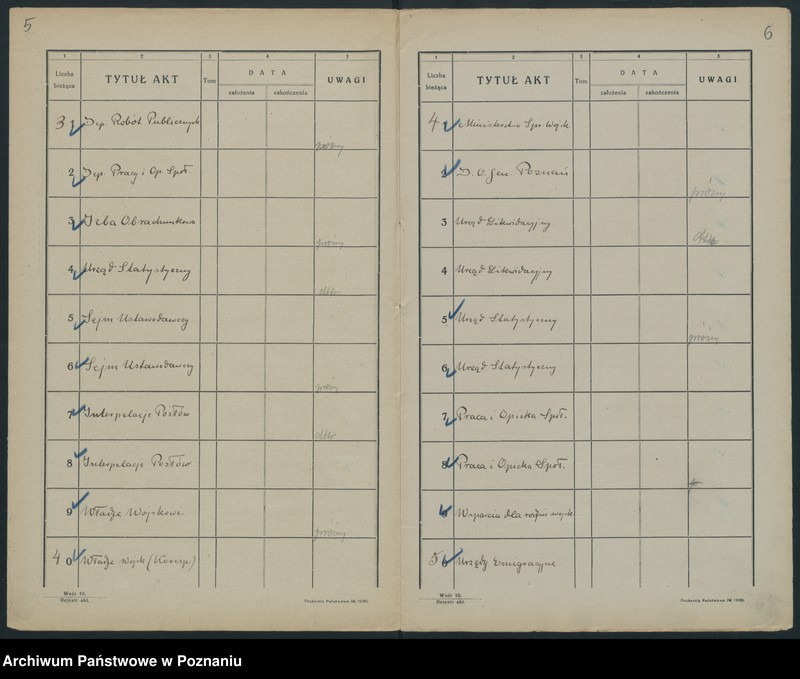 5
1 2 3 4 5
Liczba bieżąca TYTUŁ AKT Tom DATA UWAGI
założenia zakończenia
31 Dep. Robót Publicznych
próżny
2 Dep. Pracy i Op. Społ.
3 Izba Obrachunkowa
próżny
4 Urząd Statystyczny
dtto
5 Sejm Ustawodawczy
6 Sejm Ustawodawczy
próżny
7 Interpelacje Posłów
dtto
8 Interpelacje Posłów
9 Władze Wojskowe
próżny
40 Władze wojsk (Koresp)
Wzór 70.
Rejestr akt.
Drukarnia Państwowa
6
1 2 3 4 5
Liczba bieżąca TYTUŁ AKT Tom DATA UWAGI
założenia zakończenia
41 Ministerstwo Spr. Wojsk
2 D. O. Gen. Poznań
próżny
3 Urząd Likwidacyjny
dtto
4 Urząd Likwidacyjny
5 Urząd Statystyczny
próżny
6 Urząd Statystyczny
7 Praca i Opieka Społ.
8 Praca i Opieka Społ.
9 Wsparcia dla rodzin wojsk.
50 Urzędy Emigracyjne
Wzór 70.
Rejestr akt.
Drukarnia Państwowa
Archiwum Państwowe w Poznaniu